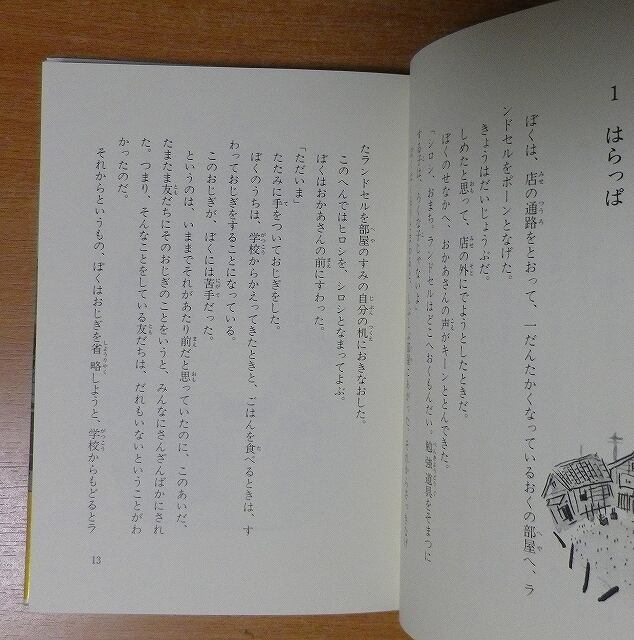 1 はらっぱ
ぼくは、店の通路をとおって、一だんたかくなっているおくの部屋へ、ラ
ンドセルをポーンとなげた。
きょうはだいじょうぶだ。
しめたと思って、店の外にでようとしたときだ。
ぼくのせなかへ、おかあさんの声がキーンととんできた。
「シロン、おまち、ランドセルはどこへおくもんだい。勉強道具をそまつに
たランドセルを部屋のすみの自分の机におきなおした。
このへんではヒロシを、シロンとなまってよぶ。
ぼくはおかあさんの前にすわった。
「ただいま」
たたみに手をついておじぎをした。
ぼくのうちは、学校からかえってきたときと、ごはんを食べるときは、す
わっておじぎをすることになっている。
このおじぎが、ぼくには苦手だった。
というのは、いままでそれがあたり前だと思っていたのに、このあいだ、
たまたま友だちにそのおじぎのことをいうと、みんなにさんざんばかにされ
た。つまり、そんなことをしている友だちは、だれもいないということがわ
かったのだ。
それからというもの、ぼくはおじぎを省略しようと、学校からもどるとラ
13